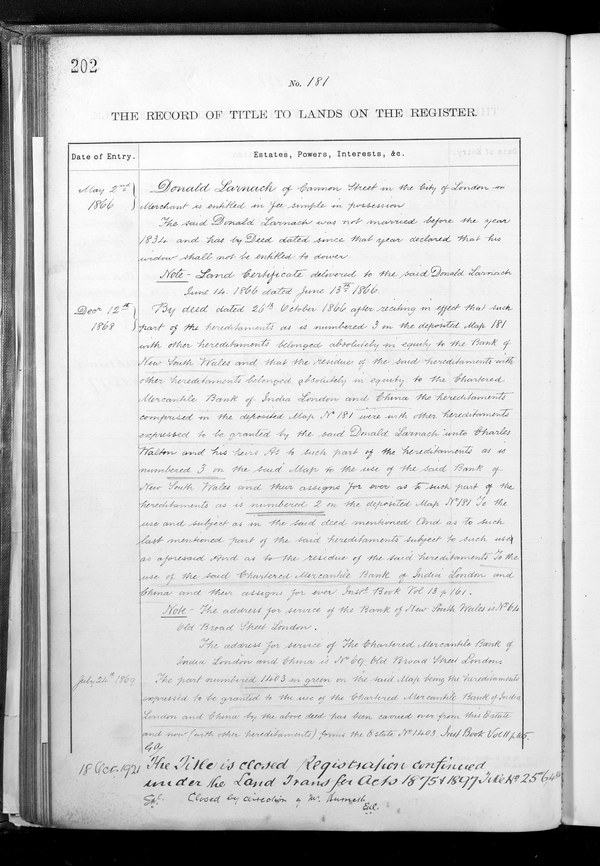 202
No. 181
THE RECORD OF TITLE TO LANDS ON THE REGISTER.
Date of Entry.
Estates, Powers, Interests, &c.
May 2nd
1866
Donald Larnach of Cannon Street in the City of London
Merchant is entitled in fee simple in possession
The said Donald Larnach was not married before the year
1834 and has by Deed dated since that year declared that his
widow shall not be entitled to dower
Note - Land Certificate delivered to the said Donald Larnach
June 14. 1866 dated June 13th 1866.
Decr 12th
1868
By deed dated 26th October 1866 after reciting in effect that such
part of the hereditaments as is numbered 3 on the deposited Map 181
with other hereditaments belonged absolutely in equity to the Bank of
New South Wales and that the residue of the said hereditaments with
other hereditaments belonged absolutely in equity to the Chartered
Mercantile Bank of India London and China the hereditaments
comprised in the deposited Map No 181 were with other hereditaments
expressed to be granted by the said Donald Larnach unto Charles
Walton and his heirs As to such part of the hereditaments as is
numbered 3 on the said Map to the use of the said Bank of
New South Wales and their assigns for ever as to such part of the
hereditaments as is numbered 2 on the deposited Map No 181 To the
use and subject as in the said deed mentioned And as to such
last mentioned part of the said hereditaments subject to such use
as aforesaid And as to the residue of the said hereditaments To the
use of the said Chartered Mercantile Bank of India London and
China and their assigns for ever Inst. Book Vol 13 p 161.
Note - The address for service of the Bank of New South Wales is No 64
Old Broad Street London.
The address for service of The Chartered Mercantile Bank of
India London and China is No 69 Old Broad Street London
July 24th 1869
The part numbered 1403 in green on the said Map being the hereditaments
expressed to be granted to the use of the Chartered Mercantile Bank of India
London and China by the above deed has been carried over from this Estate
and now (with other hereditaments) forms the Estate No 1403 Inst Book Vol 11 p
18 Oct, 1921
The Title is closed Registration continued
under the Land Transfer Acts 1875 & 1897 Title No
Closed by direction of Mr.